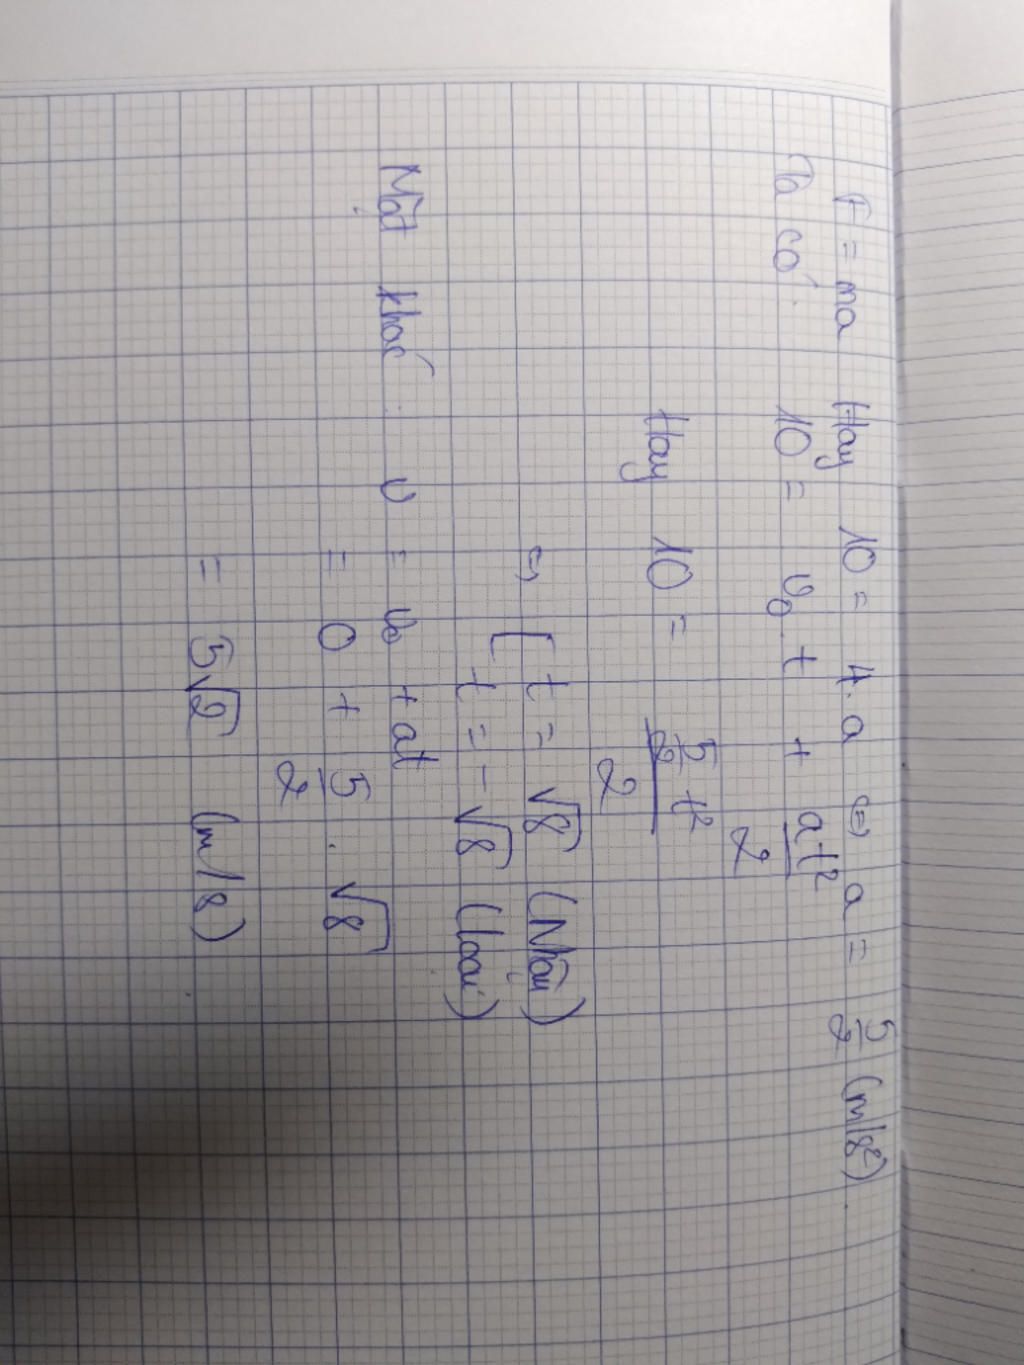 F = ma Hay 10 = 4.a ⇔ a = 5/2 (m/s²)
Ta có: 10 = v₀.t + at²/2
Hay 10 = 5/2 t²/2
⇔ [ t = √8 (Nhận)
t = -√8 (loại)
Mặt khác: v = v₀ + at
= 0 + 5/2 . √8
= 5√2 (m/s)